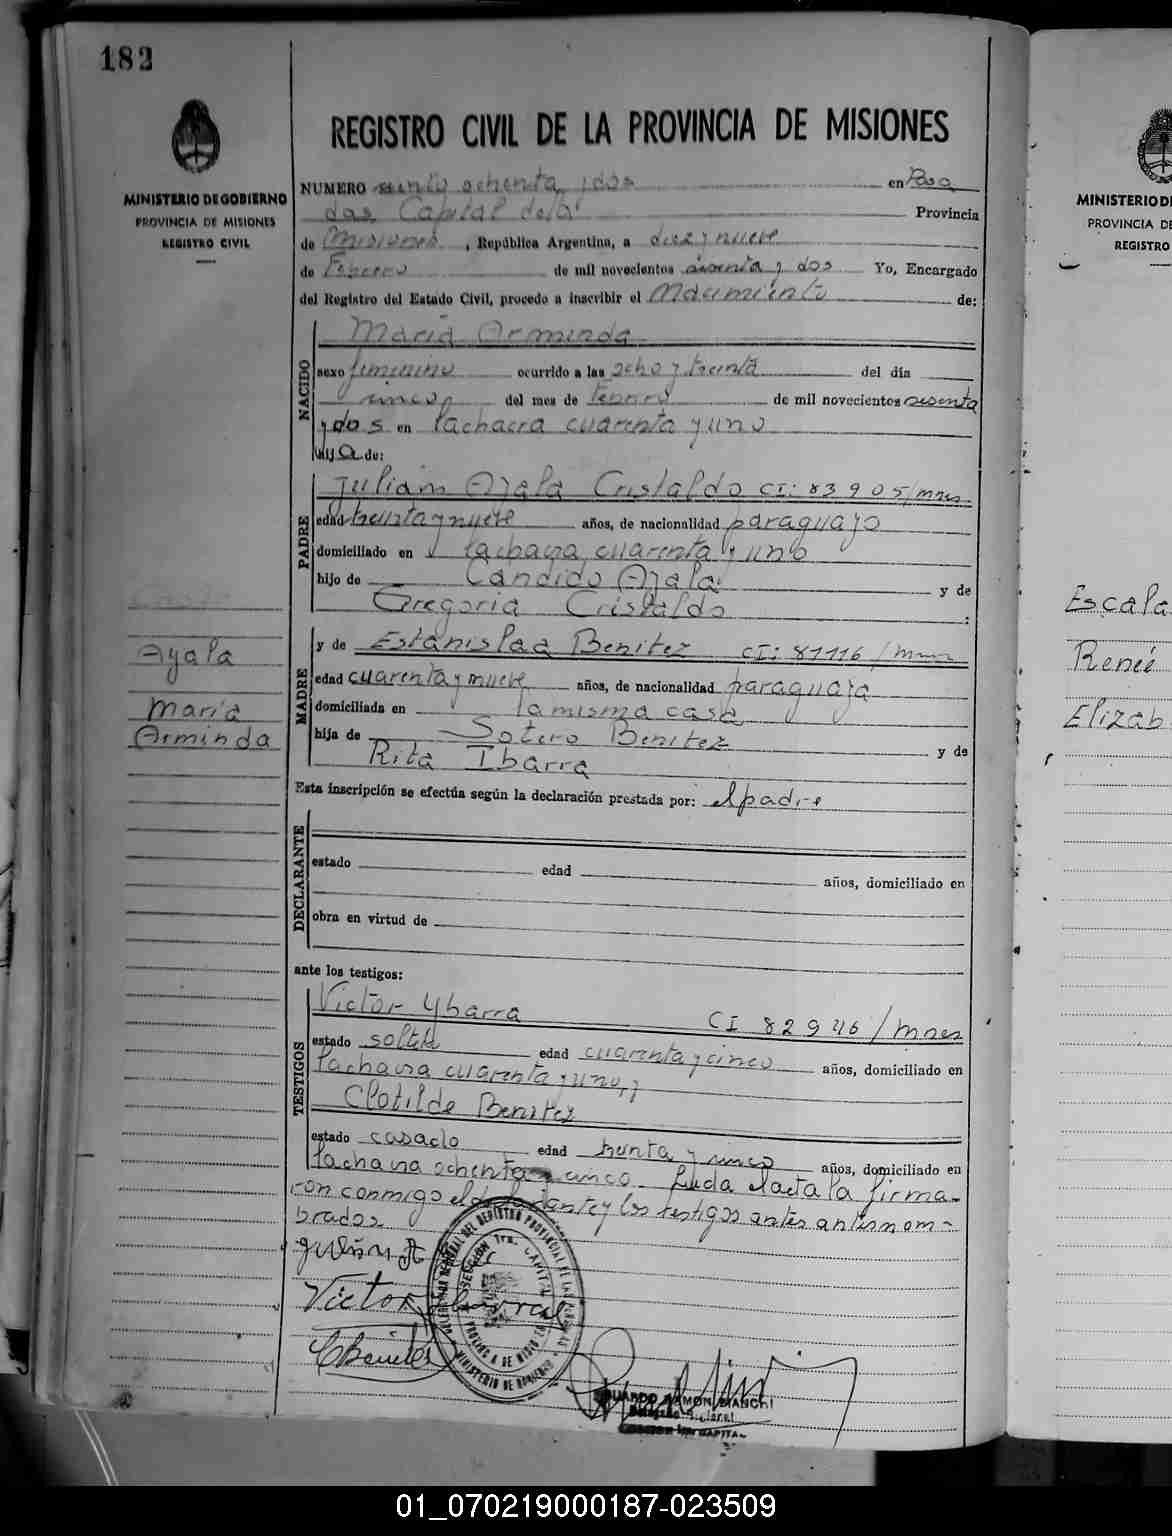 182
MINISTERIO DE GOBIERNO
PROVINCIA DE MISIONES
REGISTRO CIVIL
Ayala
María
Arminda
REGISTRO CIVIL DE LA PROVINCIA DE MISIONES
NUMERO ciento ochenta y dos en Posa
das Capital dela Provincia
de Misiones, República Argentina, a diez y nueve
de Febrero de mil novecientos sesenta y dos Yo, Encargado
del Registro del Estado Civil, procedo a inscribir el Nacimiento de:
NACIDO
María Arminda
sexo femenino ocurrido a las ocho y treinta del día
cinco del mes de Febrero de mil novecientos sesenta
y dos en lachacra cuarenta y uno
hija de:
PADRE
Julian Ayala Cristaldo CI: 83905/mnes
edad treinta y nueve años, de nacionalidad paraguayo
domiciliado en lachacra cuarenta y uno
hijo de Candido Ayala y de
Gregoria Cristaldo :
MADRE
y de Estanislaa Benitez CI: 87116/mnes
edad cuarenta y nueve años, de nacionalidad paraguaya
domiciliada en la misma casa
hija de Sotero Benitez y de
Rita Ibarra
Esta inscripción se efectúa según la declaración prestada por: el padre
DECLARANTE
estado edad años, domiciliado en
obra en virtud de
ante los testigos:
TESTIGOS
Victor Ybarra CI 82946/mnes
estado soltero edad cuarenta y cinco años, domiciliado en
lachacra cuarenta y uno, y
Clotilde Benitez
estado casado edad treinta y cinco años, domiciliado en
lachacra ochenta y cinco. Leida el acta la firma-
ron conmigo el declarante y los testigos antes antesnom-
brados
Julián A
Victor Ybarra
CBenitez
MINISTERIO DE GOBIERNO
SECCION 1ra. CAPITAL
EDUARDO RAMON BIANCHI
MINISTERIO D
PROVINCIA DE
REGISTRO
Escala
Reneé
Elizab
01_070219000187-023509